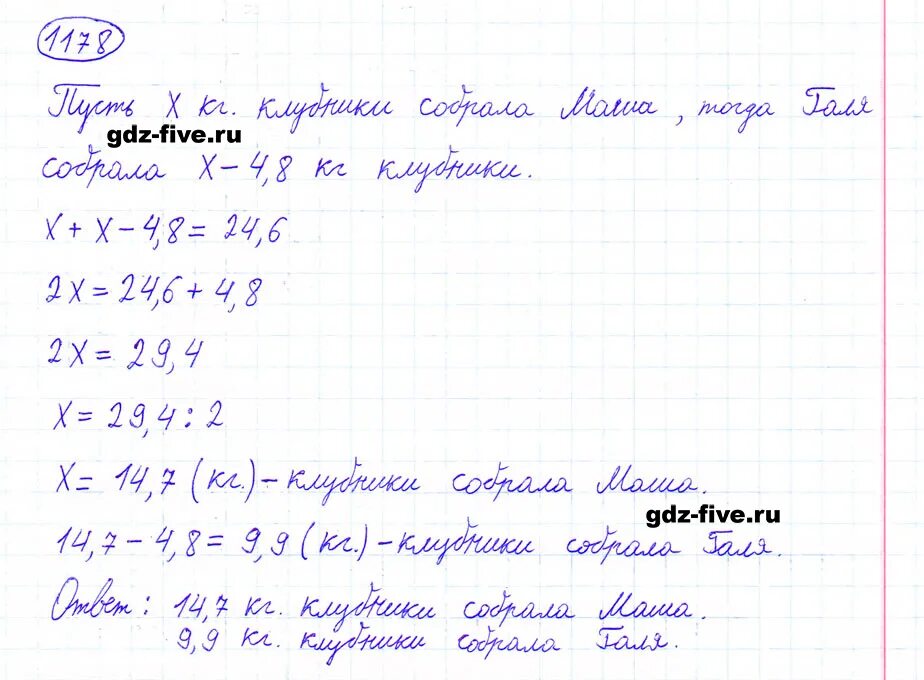 1178
Пусть х кг. клубники собрала Маша, тогда Галя
gdz-five.ru
собрала х - 4,8 кг клубники.
х + х - 4,8 = 24,6
2х = 24,6 + 4,8
2х = 29,4
х = 29,4 : 2
х = 14,7 (кг.) - клубники собрала Маша.
gdz-five.ru
14,7 - 4,8 = 9,9 (кг.) - клубники собрала Галя.
Ответ: 14,7 кг. клубники собрала Маша.
9,9 кг. клубники собрала Галя.